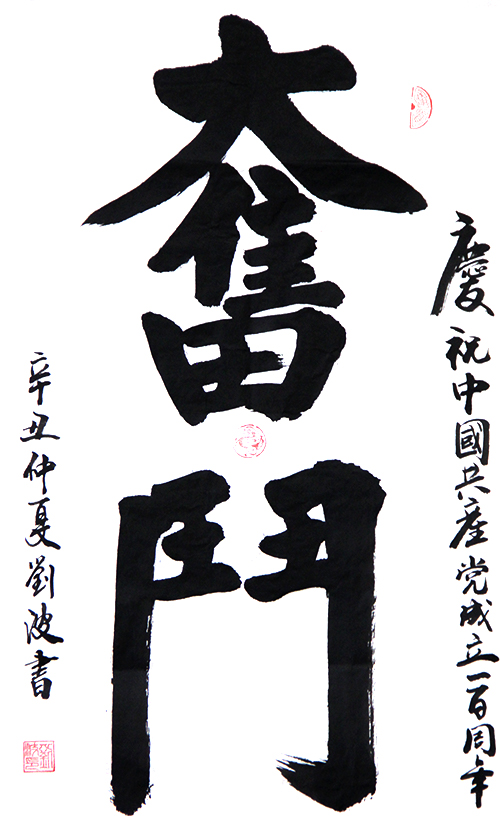 慶祝中國共產党成立一百周年
奮鬥
辛丑仲夏劉波書